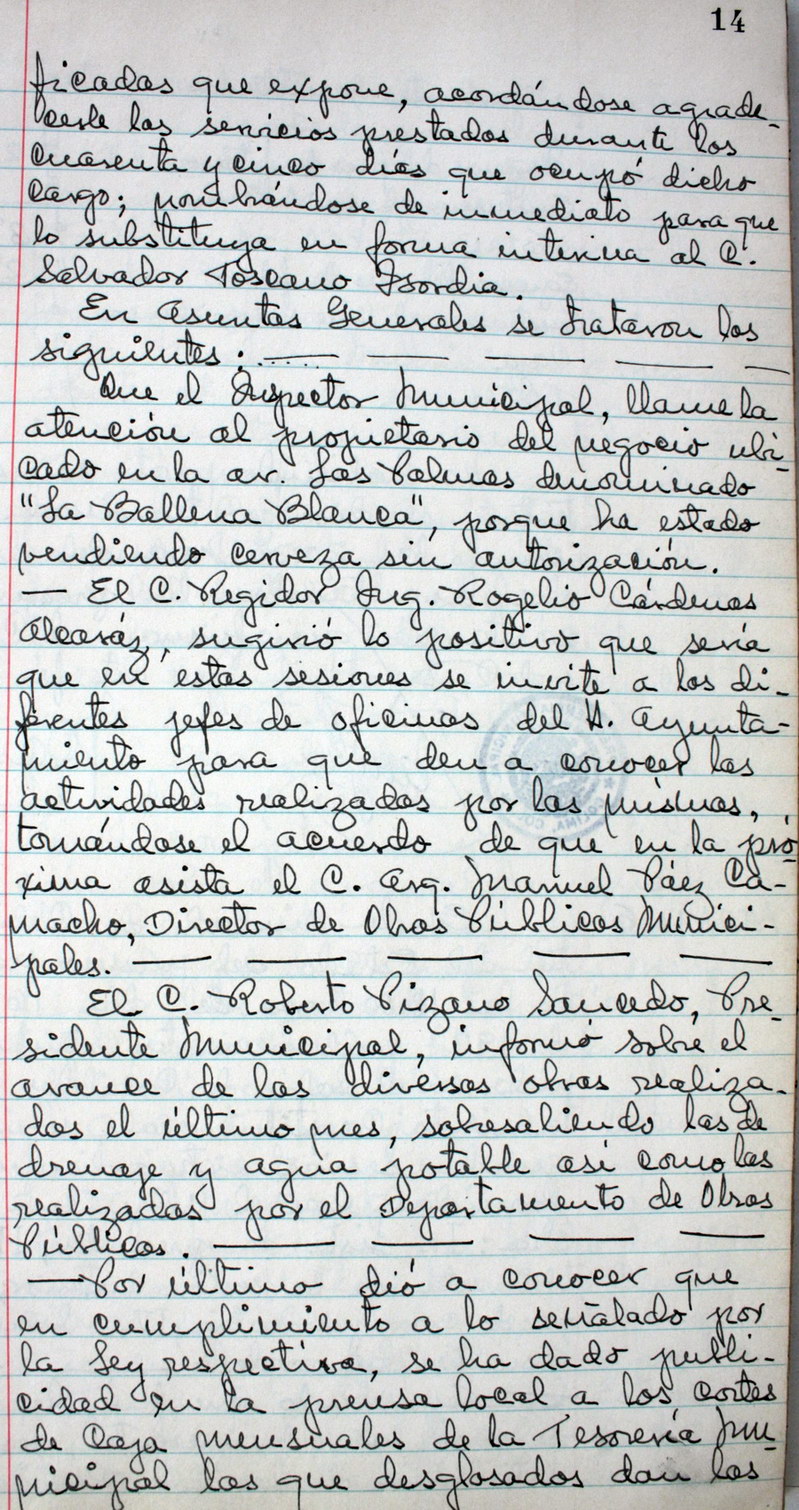 14
ficadas que expone, acordándose agrade-
cerle los servicios prestados durante los
cuarenta y cinco días que ocupó dicho
cargo; nombrándose de inmediato para que
lo substituya en forma interina al C.
Salvador Toscano Isordia.
En Asuntos Generales se trataron los
siguientes:
Que el Inspector Municipal, llame la
atención al propietario del negocio ubi-
cado en la av. Las Palmas denominado
"La Ballena Blanca", porque ha estado
vendiendo cerveza sin autorización.
— El C. Regidor Ing. Rogelio Cárdenas
Alcaráz, sugirió lo positivo que sería
que en estas sesiones se invite a los di-
ferentes jefes de oficinas del H. Ayunta-
miento para que den a conocer las
actividades realizadas por las mismas,
tomándose el acuerdo de que en la pró-
xima asista el C. Arq. Manuel Páez Ca-
macho, Director de Obras Públicas Munici-
pales.
El C. Roberto Pizano Saucedo, Pre-
sidente Municipal, informó sobre el
avance de las diversas obras realiza-
das el último mes, sobresaliendo las de
drenaje y agua potable así como las
realizadas por el Departamento de Obras
Públicas.
— Por último dió a conocer que
en cumplimiento a lo señalado por
la Ley respectiva, se ha dado publi-
cidad en la prensa local a los cortes
de Caja mensuales de la Tesorería Mu-
nicipal los que desglosados dan los